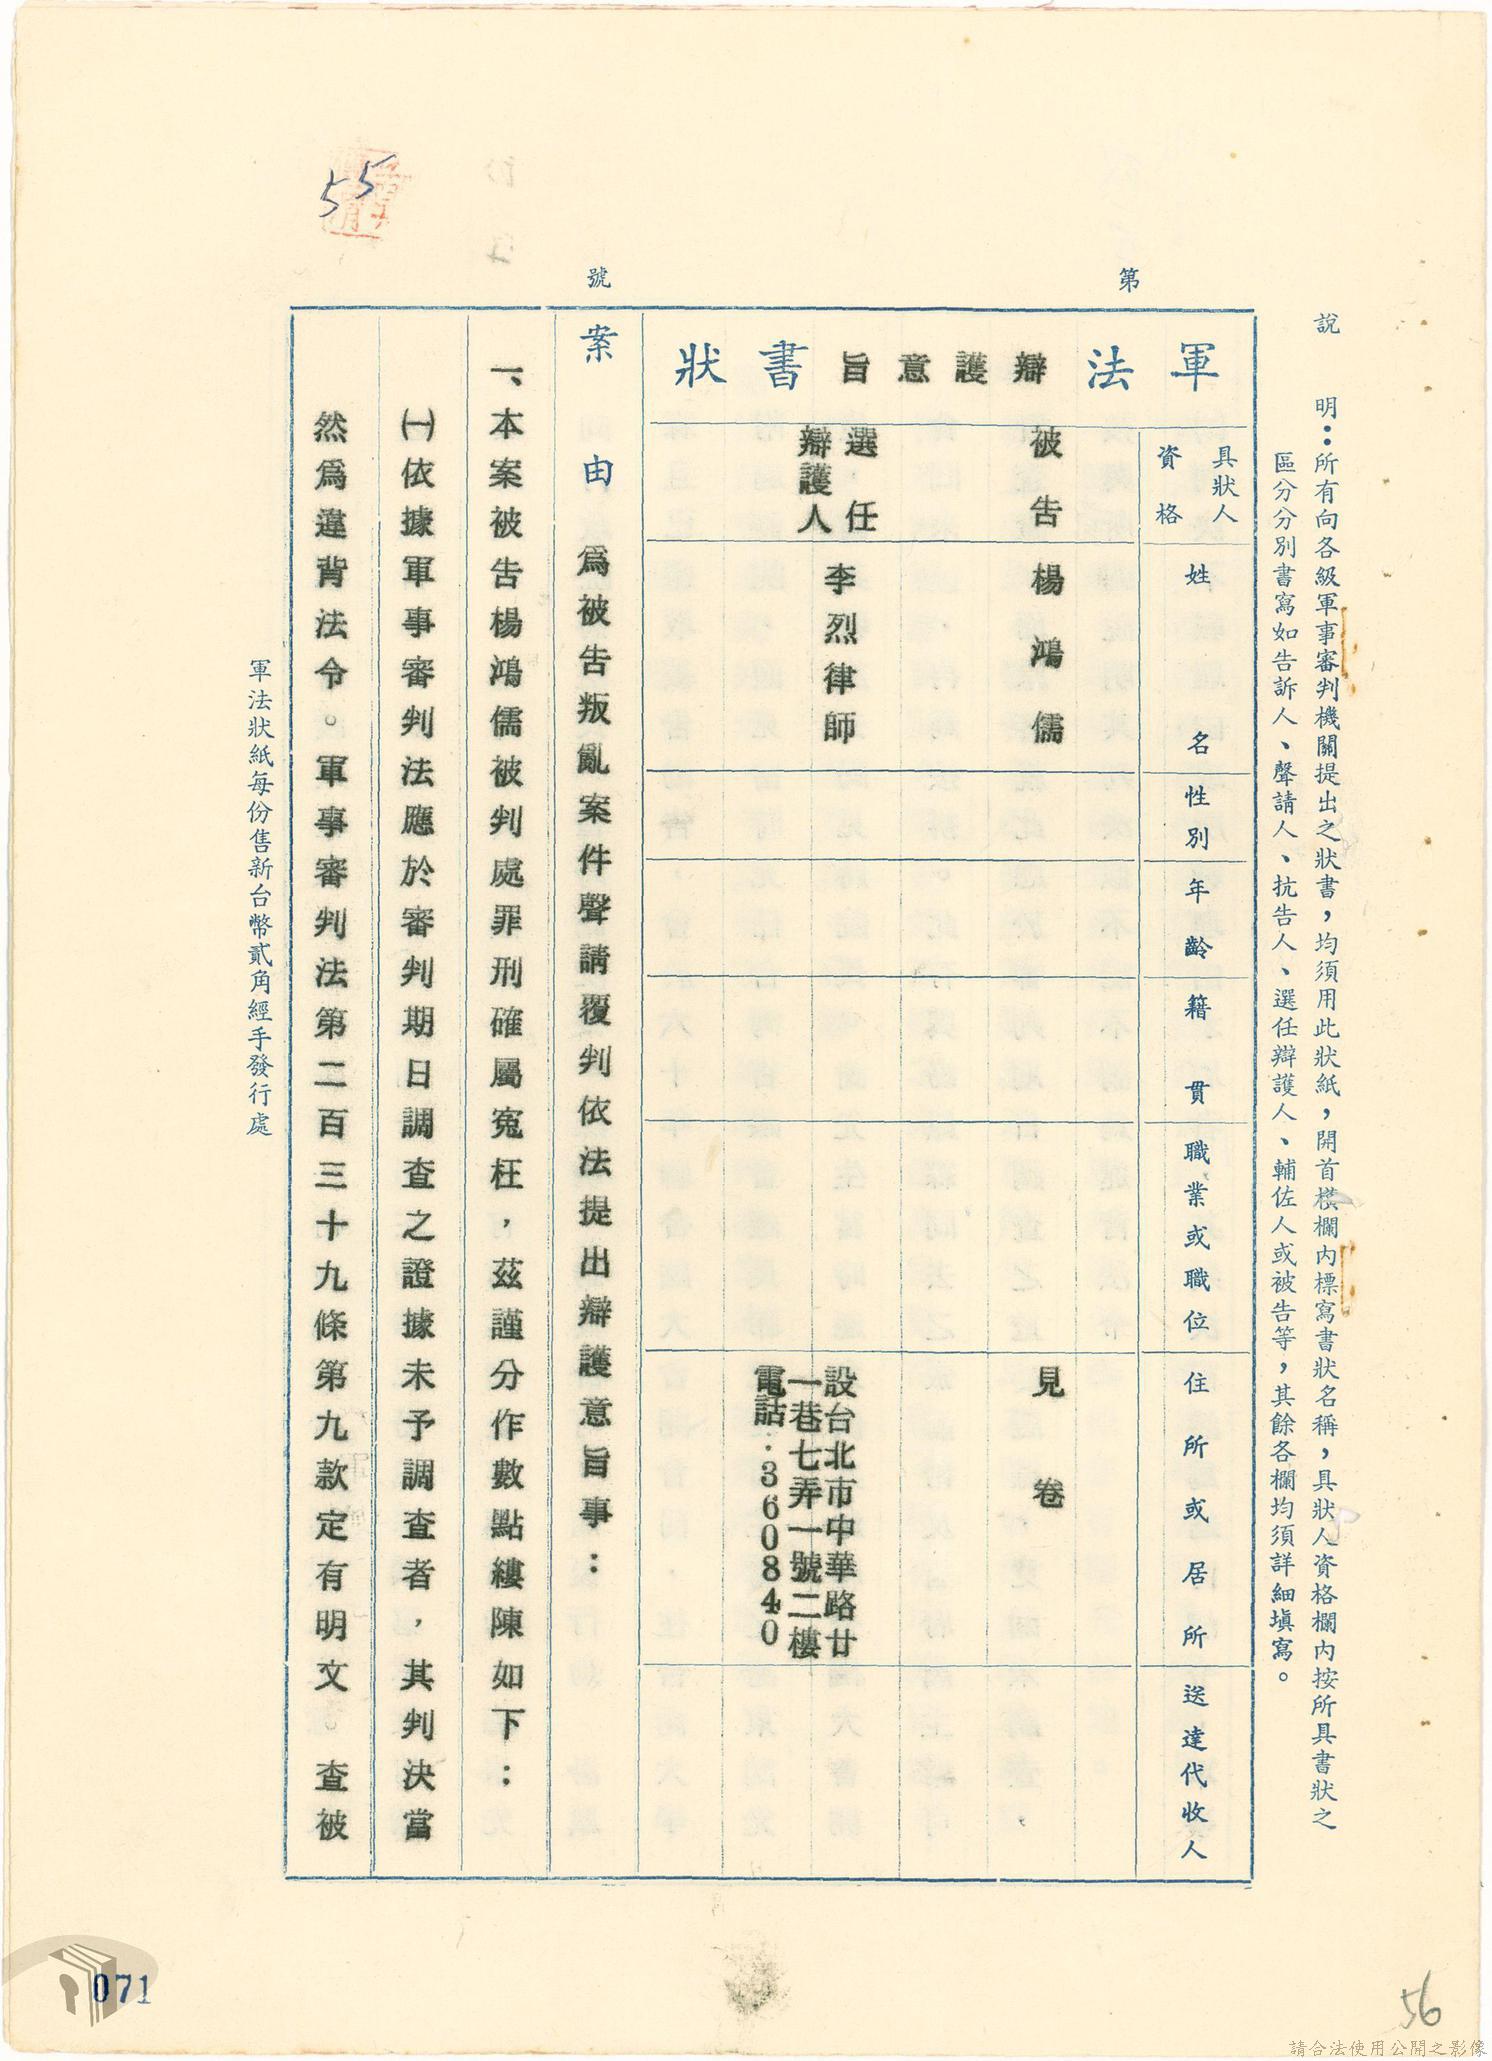 說 明：所有向各級軍事審判機關提出之狀書，均須用此狀紙，開首橫欄內標寫書狀名稱，具狀人資格欄內按所具書狀之
區分分別書寫如告訴人、聲請人、抗告人、選任辯護人、輔佐人或被告等，其餘各欄均須詳細填寫。
第 號
軍法辯護意旨書狀
具狀人
資格
姓名
性別
年齡
籍貫
職業或職位
住所或居所
送達代收人
被告
楊鴻儒
見卷
選任
辯護人
李烈律師
設台北市中華路廿
一巷七弄一號二樓
電話：360840
案由 為被告叛亂案件聲請覆判依法提出辯護意旨事：
一、本案被告楊鴻儒被判處罪刑確屬冤枉，茲謹分作數點縷陳如下：
㈠依據軍事審判法應於審判期日調查之證據未予調查者，其判決當
然為違背法令。軍事審判法第二百三十九條第九款定有明文。查被
軍法狀紙每份售新台幣貳角經手發行處
55
071
56
請合法使用公開之影像